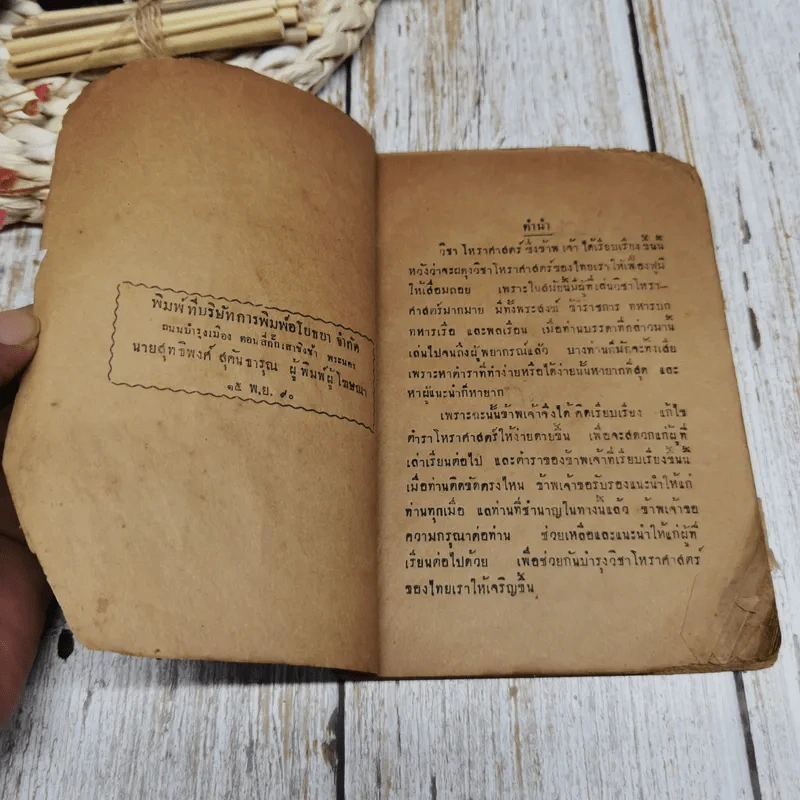 พิมพ์ที่บริษัทการพิมพ์อโยธยา จำกัด
ถนนบำรุงเมือง ตอนสี่กั๊กเสาชิงช้า พระนคร
นายสุทธิพงศ์ สุตันธารุณ ผู้พิมพ์ผู้โฆษณา
๑๕ พ.ย. ๙๐
คำนำ
วิชา โหราศาสตร์ ซึ่งข้าพ เจ้า ได้เรียบเรียง ขึ้นนี้
หวังว่าจะผดุงวิชาโหราศาสตร์ของไทยเราให้เฟื่องฟูมิ
ให้เสื่อมถอย เพราะในสมัยนี้มีผู้ที่เล่นวิชาโหรา—
ศาสตร์มากมาย มีทั้งพระสงฆ์ ข้าราชการ ทหารบก
ทหารเรือ และพลเรือน เมื่อท่านบรรดาที่กล่าวมานี้
เล่นไปจนถึงผู้พยากรณ์แล้ว บางท่านก็มักจะทิ้งเสีย
เพราะหาตำราที่ทำง่ายหรือได้ง่ายนั้นหายากที่สุด และ
หาผู้แนะนำก็หายาก
เพราะฉะนั้นข้าพเจ้าจึงได้ คิดเรียบเรียง แก้ไข
ตำราโหราศาสตร์ให้ง่ายดายขึ้น เพื่อจะสดวกแก่ผู้ที่
เล่าเรียนต่อไป และตำราของข้าพเจ้าที่เรียบเรียงขึ้นนี้
เมื่อท่านติดขัดตรงไหน ข้าพเจ้าขอรับรองแนะนำให้แก่
ท่านทุกเมื่อ แลท่านที่ชำนาญในทางนี้แล้ว ข้าพเจ้าขอ
ความกรุณาต่อท่าน ช่วยเหลือและแนะนำให้แก่ผู้ที่
เรียนต่อไปด้วย เพื่อช่วยกันบำรุงวิชาโหราศาสตร์
ของไทยเราให้เจริญขึ้น